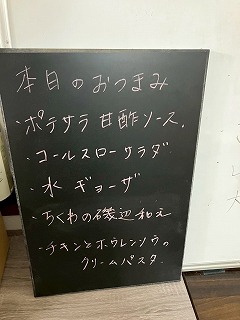 本日のおつまみ
・ポテサラ 甘酢ソース.
・コールスローサラダ
・水ギョーザ
・ちくわの磯辺和え
・チキンとホウレンソウの
クリームパスタ.